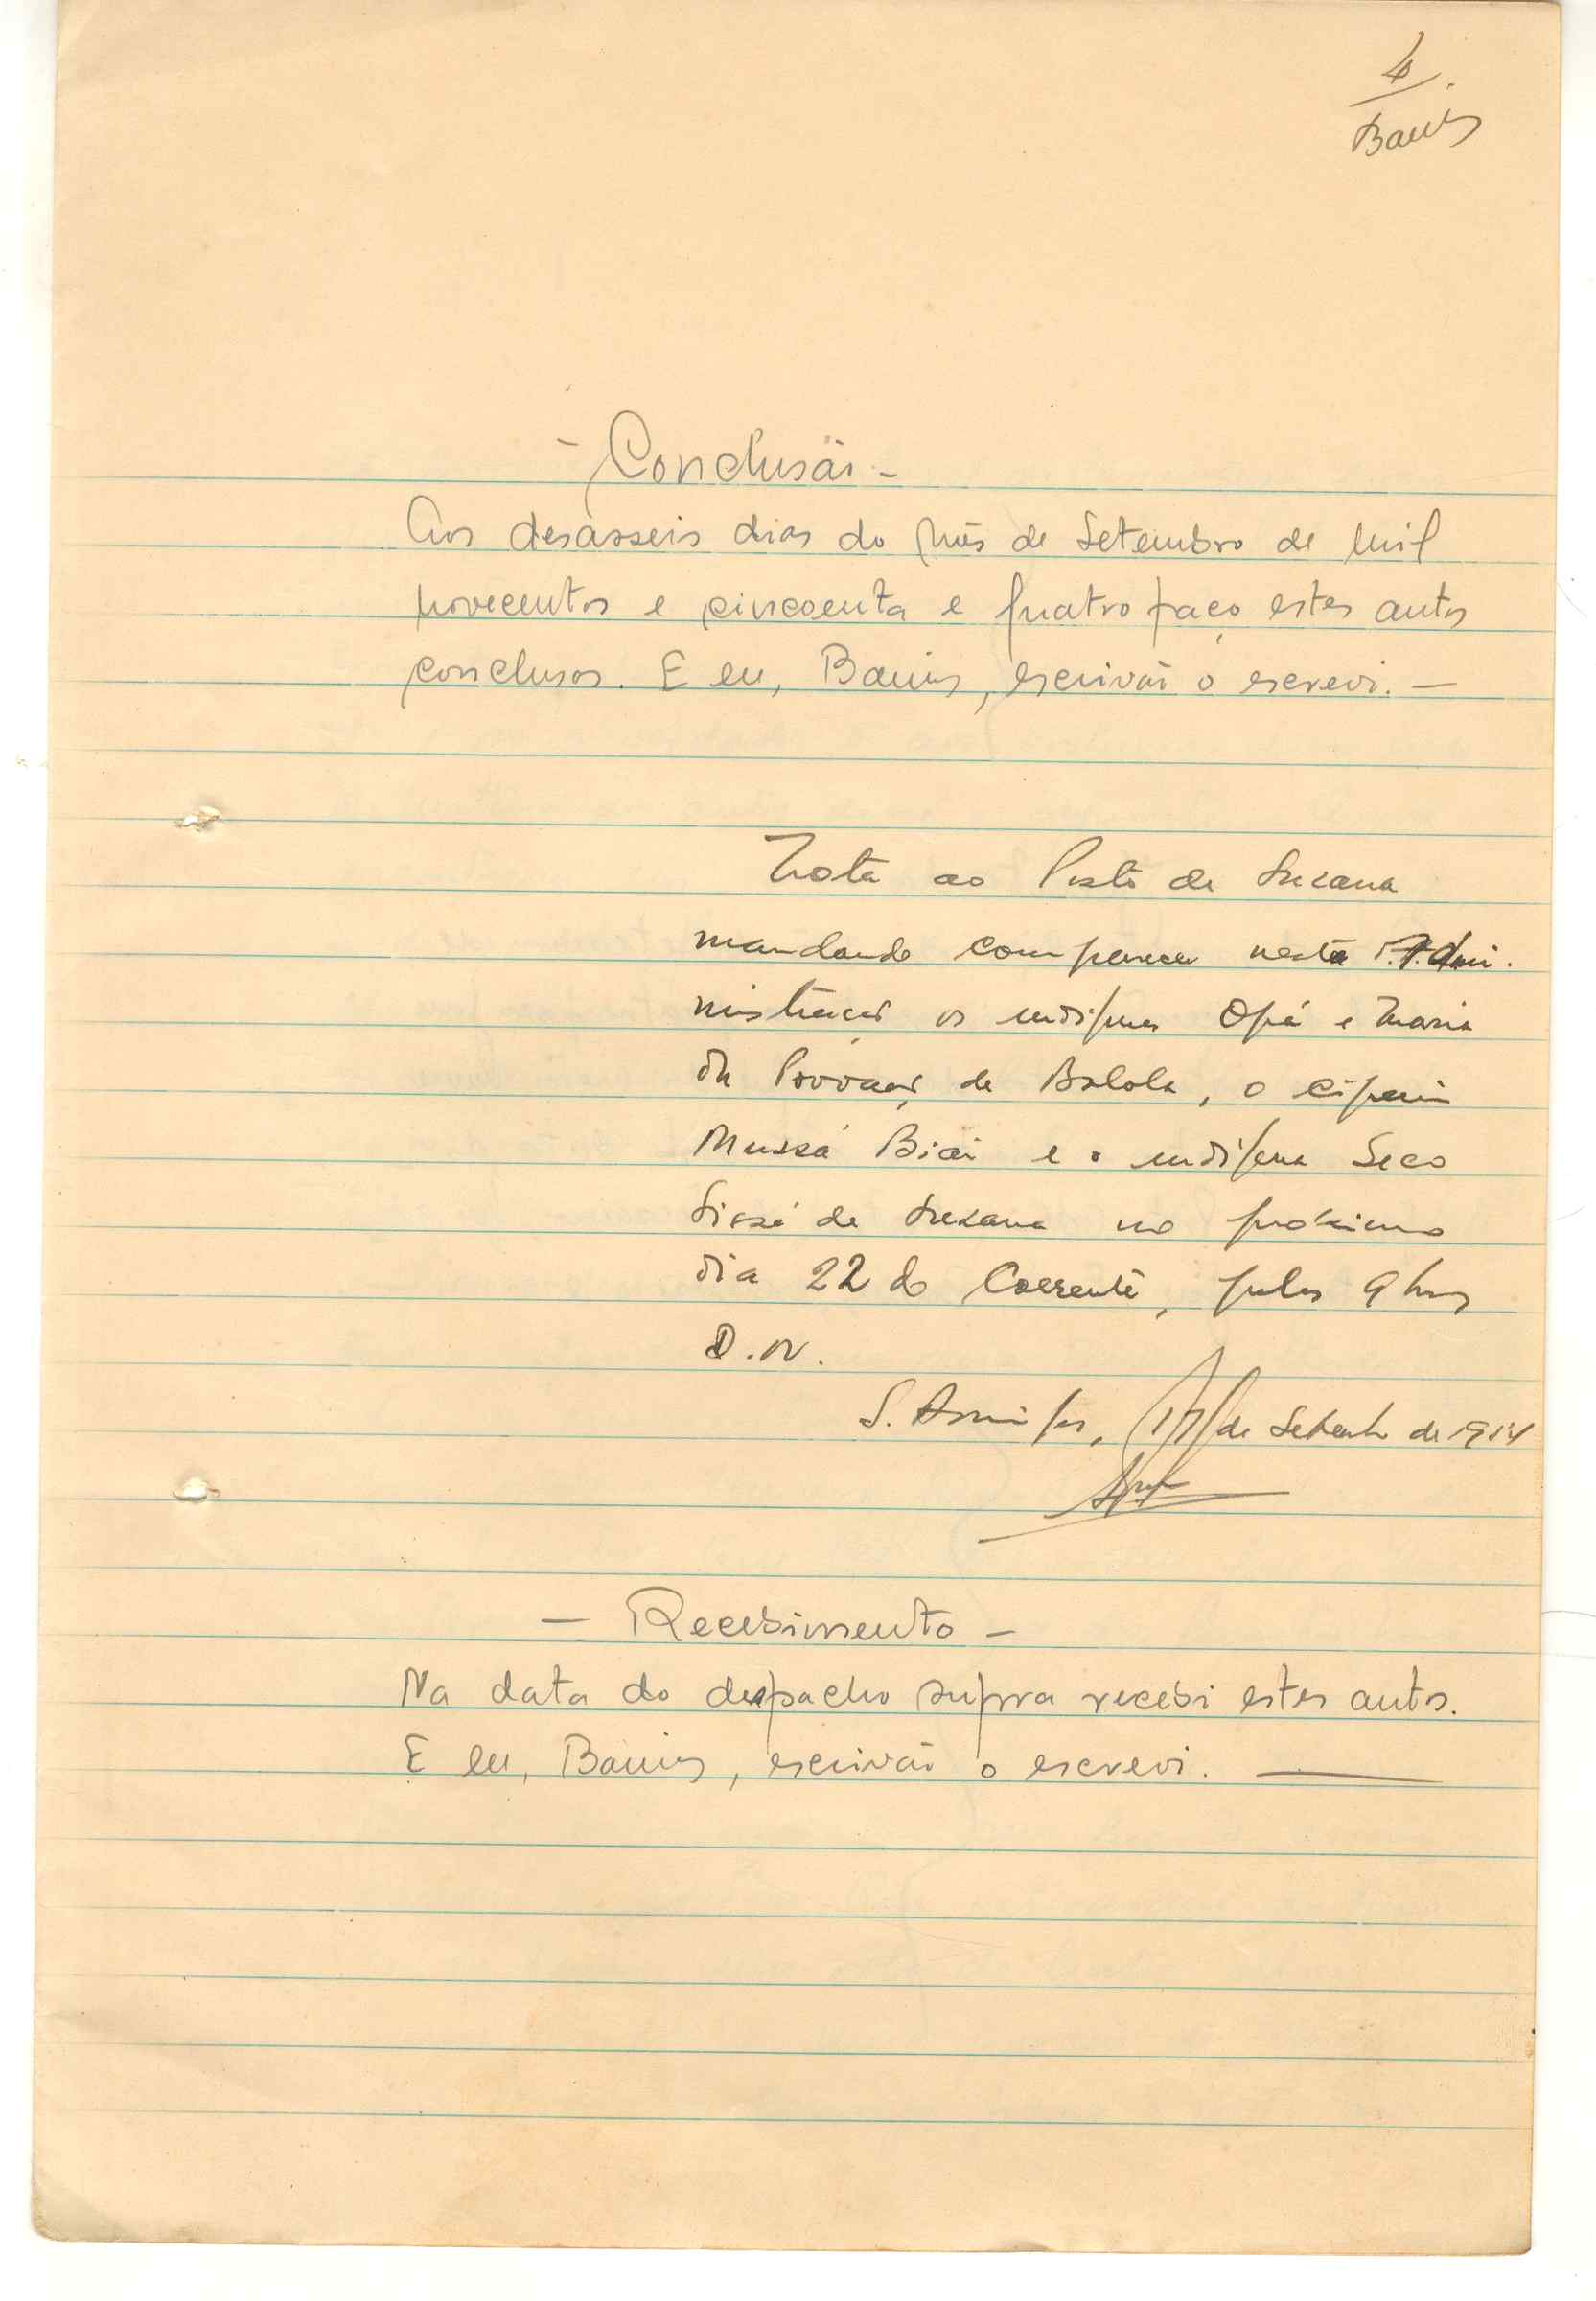 4
- Conclusão -
Aos desasseis dias do mês de Setembro de mil
novecentos e cincoenta e quatro faço estes autos
conclusos. E eu, escrivão o escrevi. —
Nota ao Posto de Suzana
mandando comparecer nesta Admi-
nistração os indígenas Opá e Maria
da Povoação de Bolola, o cipaio
Mussá Biai e o indígena Seco
Sissé de Suzana no próximo
dia 22 do Corrente, pelas 9 horas
D. N.
S. Domingos, 17 de Setembro de 1954
— Recebimento —
Na data do despacho supra recebi estes autos.
E eu, escrivão o escrevi. —